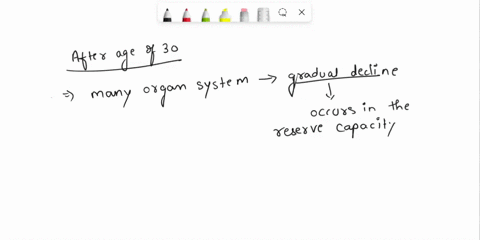 After age of 30
⇒ many organ system → gradual decline
↓
occurs in the
reserve capacity